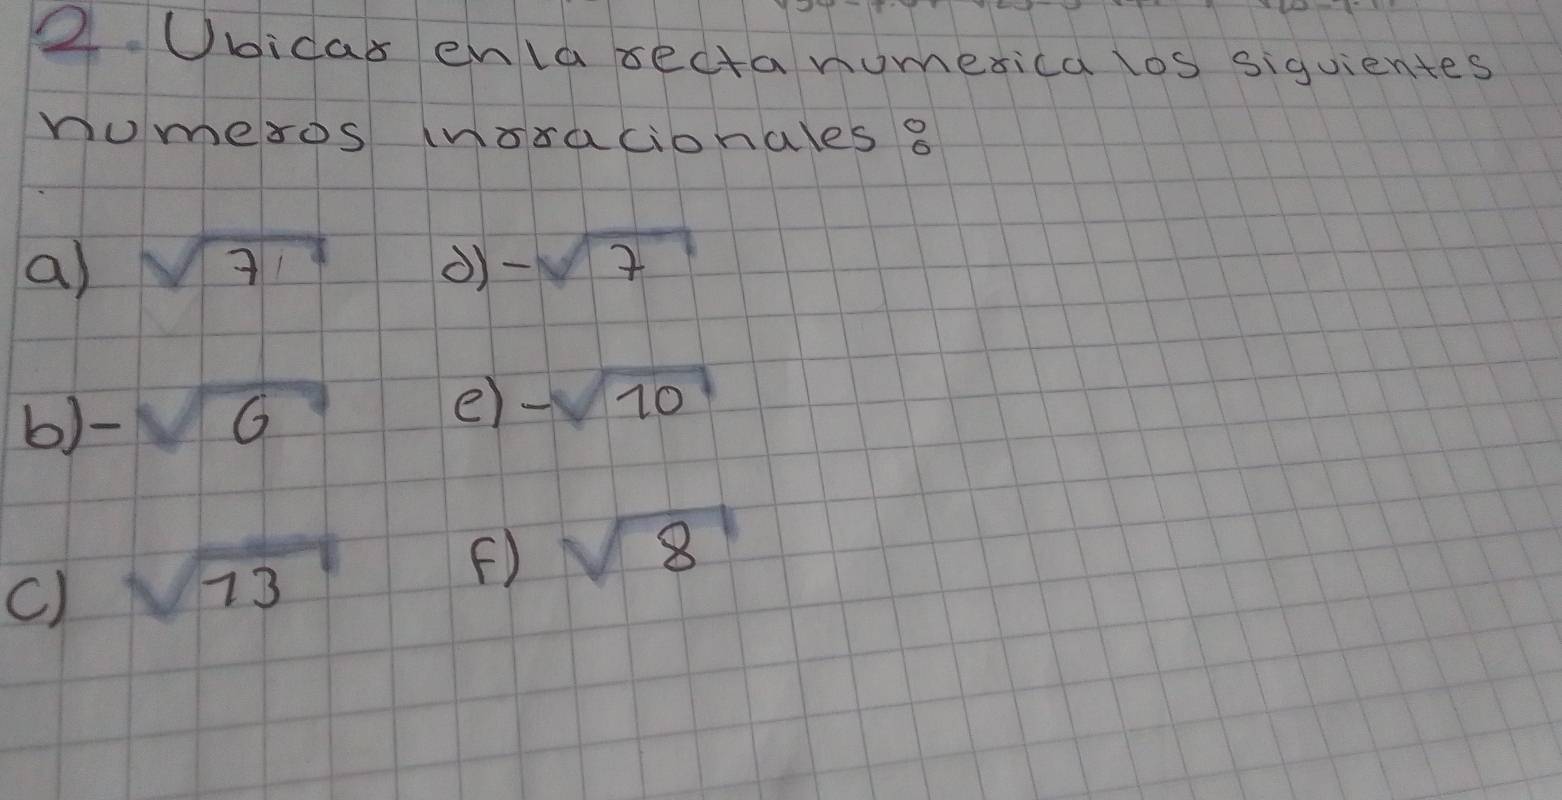 2. Ubicar en la recta numerica los siguientes
numeros inrracionales:
a) √7 d) -√7
b) -√6 e) -√10
c) √13 f) √8